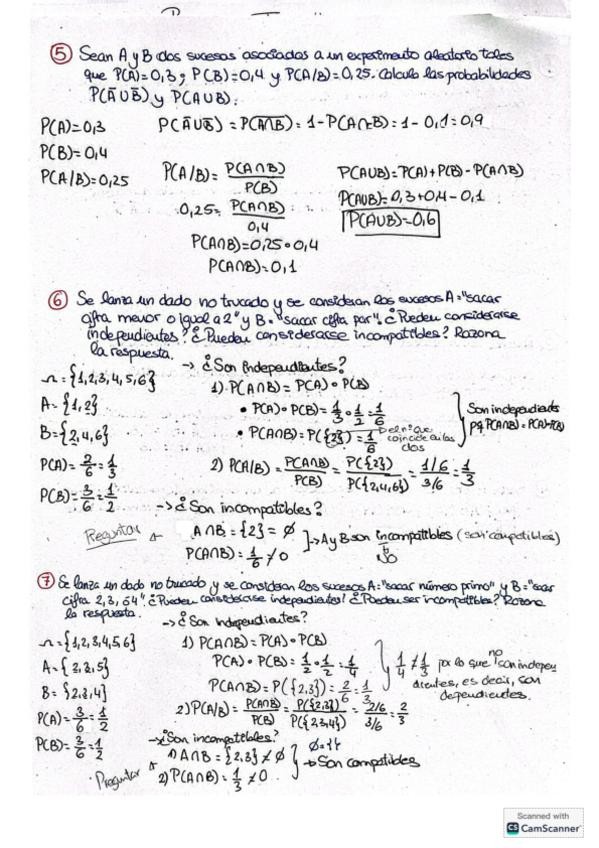 ⑤ Sean A y B dos sucesos asociados a un experimento aleatorio tales
que P(A)=0,3; P(B)=0,4 y P(A/B)=0,25. Calcula las probabilidades
P(Ā∪B̄) y P(A∪B).
P(A)=0,3
P(B)=0,4
P(A/B)=0,25
P(Ā∪B̄) = P(A̅∩̅B̅) = 1-P(A∩B)= 1 - 0,1 = 0,9
P(A/B)= P(A∩B) / P(B)
0,25 = P(A∩B) / 0,4
P(A∩B)=0,25 · 0,4
P(A∩B)=0,1
P(A∪B)=P(A)+P(B)-P(A∩B)
P(A∪B)=0,3+0,4-0,1
P(A∪B)=0,6
⑥ Se lanza un dado no trucado y se consideran los sucesos A="sacar
cifra menor o igual a 2" y B="sacar cifra par". ¿Pueden considerarse
independientes? ¿Pueden considerarse incompatibles? Razona
la respuesta.
Ω={1,2,3,4,5,6}
A={1,2}
B={2,4,6}
P(A)=2/6=1/3
P(B)=3/6=1/2
→ ¿Son Independientes?
1) P(A∩B)=P(A)·P(B)
• P(A)·P(B)=1/3·1/2=1/6
• P(A∩B)=P({2})=1/6
El nº que
coincide en las
dos
Son independientes
pq P(A∩B)=P(A)·P(B)
2) P(A/B)=P(A∩B)/P(B)=P({2})/P({2,4,6})=1/6/3/6=1/3
→ ¿Son incompatibles?
Preguntar
A∩B={2}=∅
P(A∩B)=1/6≠0
→ A y B son incompatibles (son compatibles)
No
⑦ Se lanza un dado no trucado y se consideran los sucesos A="sacar número primo" y B="sacar
cifra 2, 3, ó 4". ¿Pueden considerarse independientes? ¿Pueden ser incompatibles? Razona
la respuesta.
Ω={1,2,3,4,5,6}
A={2,3,5}
B={2,3,4}
P(A)=3/6=1/2
P(B)=3/6=1/2
→ ¿Son Independientes?
1) P(A∩B)=P(A)·P(B)
P(A)·P(B)=1/2·1/2=1/4
P(A∩B)=P({2,3})=2/6=1/3
1/4≠1/3 por lo que no son indepen
dientes, es decir, son
dependientes.
2) P(A/B)=P(A∩B)/P(B)=P({2,3})/P({2,3,4})=2/6/3/6=2/3
→ ¿Son incompatibles?
Preguntar
1) A∩B={2,3}≠∅
∅={}
2) P(A∩B)=1/3≠0
→ Son compatibles
Scanned with
CS CamScanner